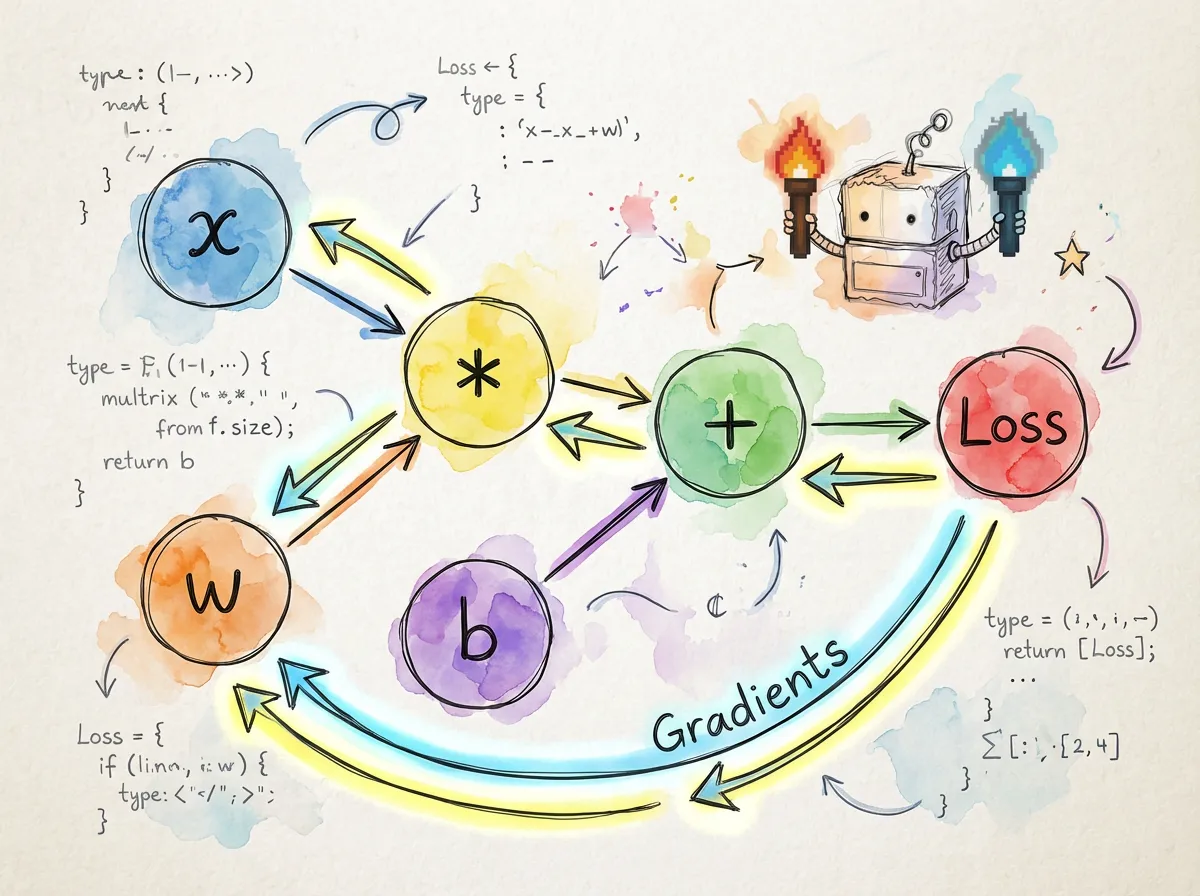 type : (1–, ...>)
nent {
}
}
Loss ← {
type = {
: 'x–_x_+w)',
: – –
}
x
*
+
Loss
w
b
Gradients
type = (1–1, ...) {
multrix
from f. size);
return b
}
Loss = {
if
type: <"</";>";
}
type =
return [Loss];
...
}
Σ [: [2,4]
}
}